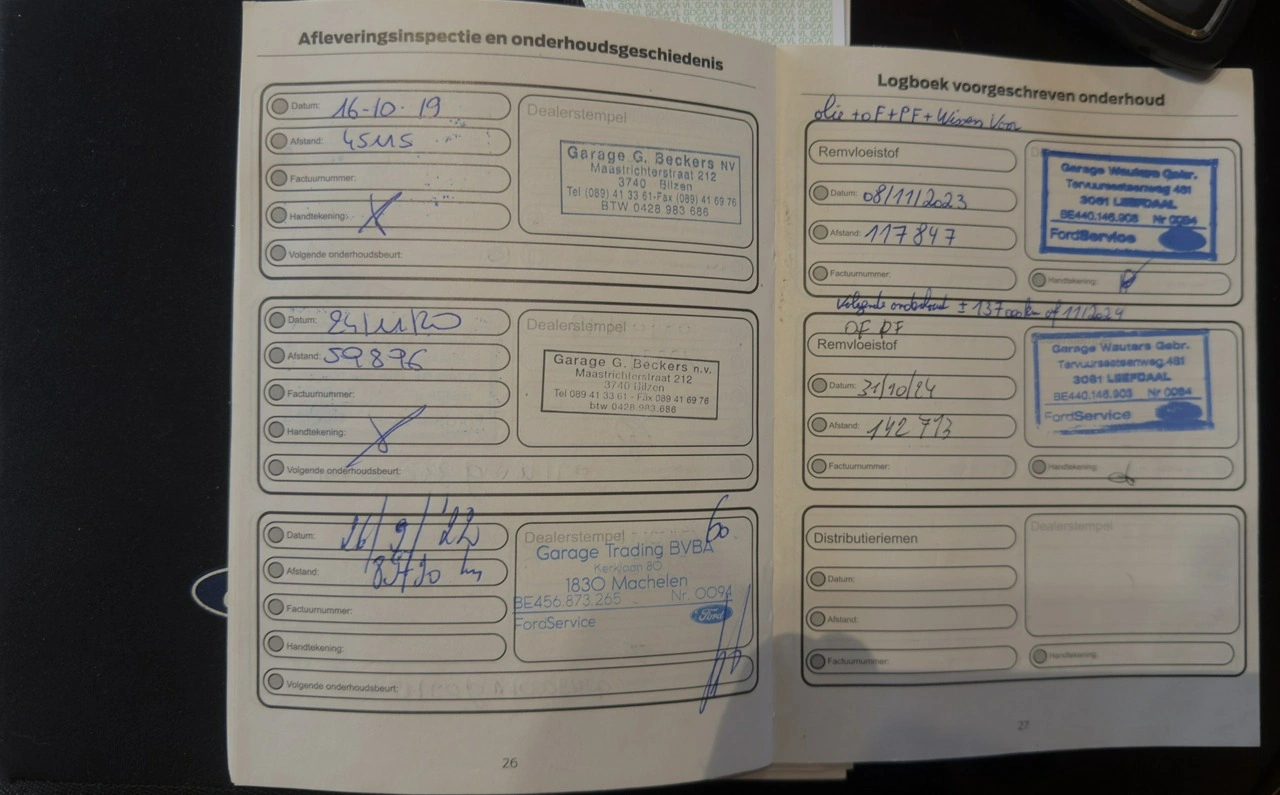 Afleveringsinspectie en onderhoudsgeschiedenis
Datum: 16-10-19
Afstand:
Factuurnummer:
Handtekening:
Volgende onderhoudsbeurt:
Dealerstempel
Garage G. Beckers NV
Maastrichterstraat 212
3740 Bilzen
Tel (089) 41 33 61-Fax (089) 41 69 76
BTW 0428 983 686
Datum: 24/11/20
Afstand: 59896
Factuurnummer:
Handtekening:
Volgende onderhoudsbeurt:
Dealerstempel
Garage G. Beckers n.v.
Maastrichterstraat 212
3740 Bilzen
Tel 089 41 33 61 - Fax 089 41 69 76
btw 0428.983.686
Datum: 26/9/'22
Afstand: km
Factuurnummer:
Handtekening:
Volgende onderhoudsbeurt:
Dealerstempel
Garage Trading BVBA
Kerklaan 80
1830 Machelen
BE456.873.265 Nr. 0094
FordService
Ford
26
Logboek voorgeschreven onderhoud
olie + OF + PF + Wissen Voor
Remvloeistof
Datum: 08/11/2023
Afstand: 117847
Factuurnummer:
Garage Wauters Gebr.
Tervuursesteenweg 481
3061 LEEFDAAL
BE440.146.903 Nr 0084
FordService
Handtekening:
Volgende onderhoud ± 137 000 km of 11/2024
OF PF
Remvloeistof
Datum: 31/10/24
Afstand: 142 713
Factuurnummer:
Garage Wauters Gebr.
Tervuursesteenweg.481
3061 LEEFDAAL
BE440.146.903 Nr 0084
FordService
Handtekening:
Distributieriemen
Datum:
Afstand:
Factuurnummer:
Dealerstempel
Handtekening:
27